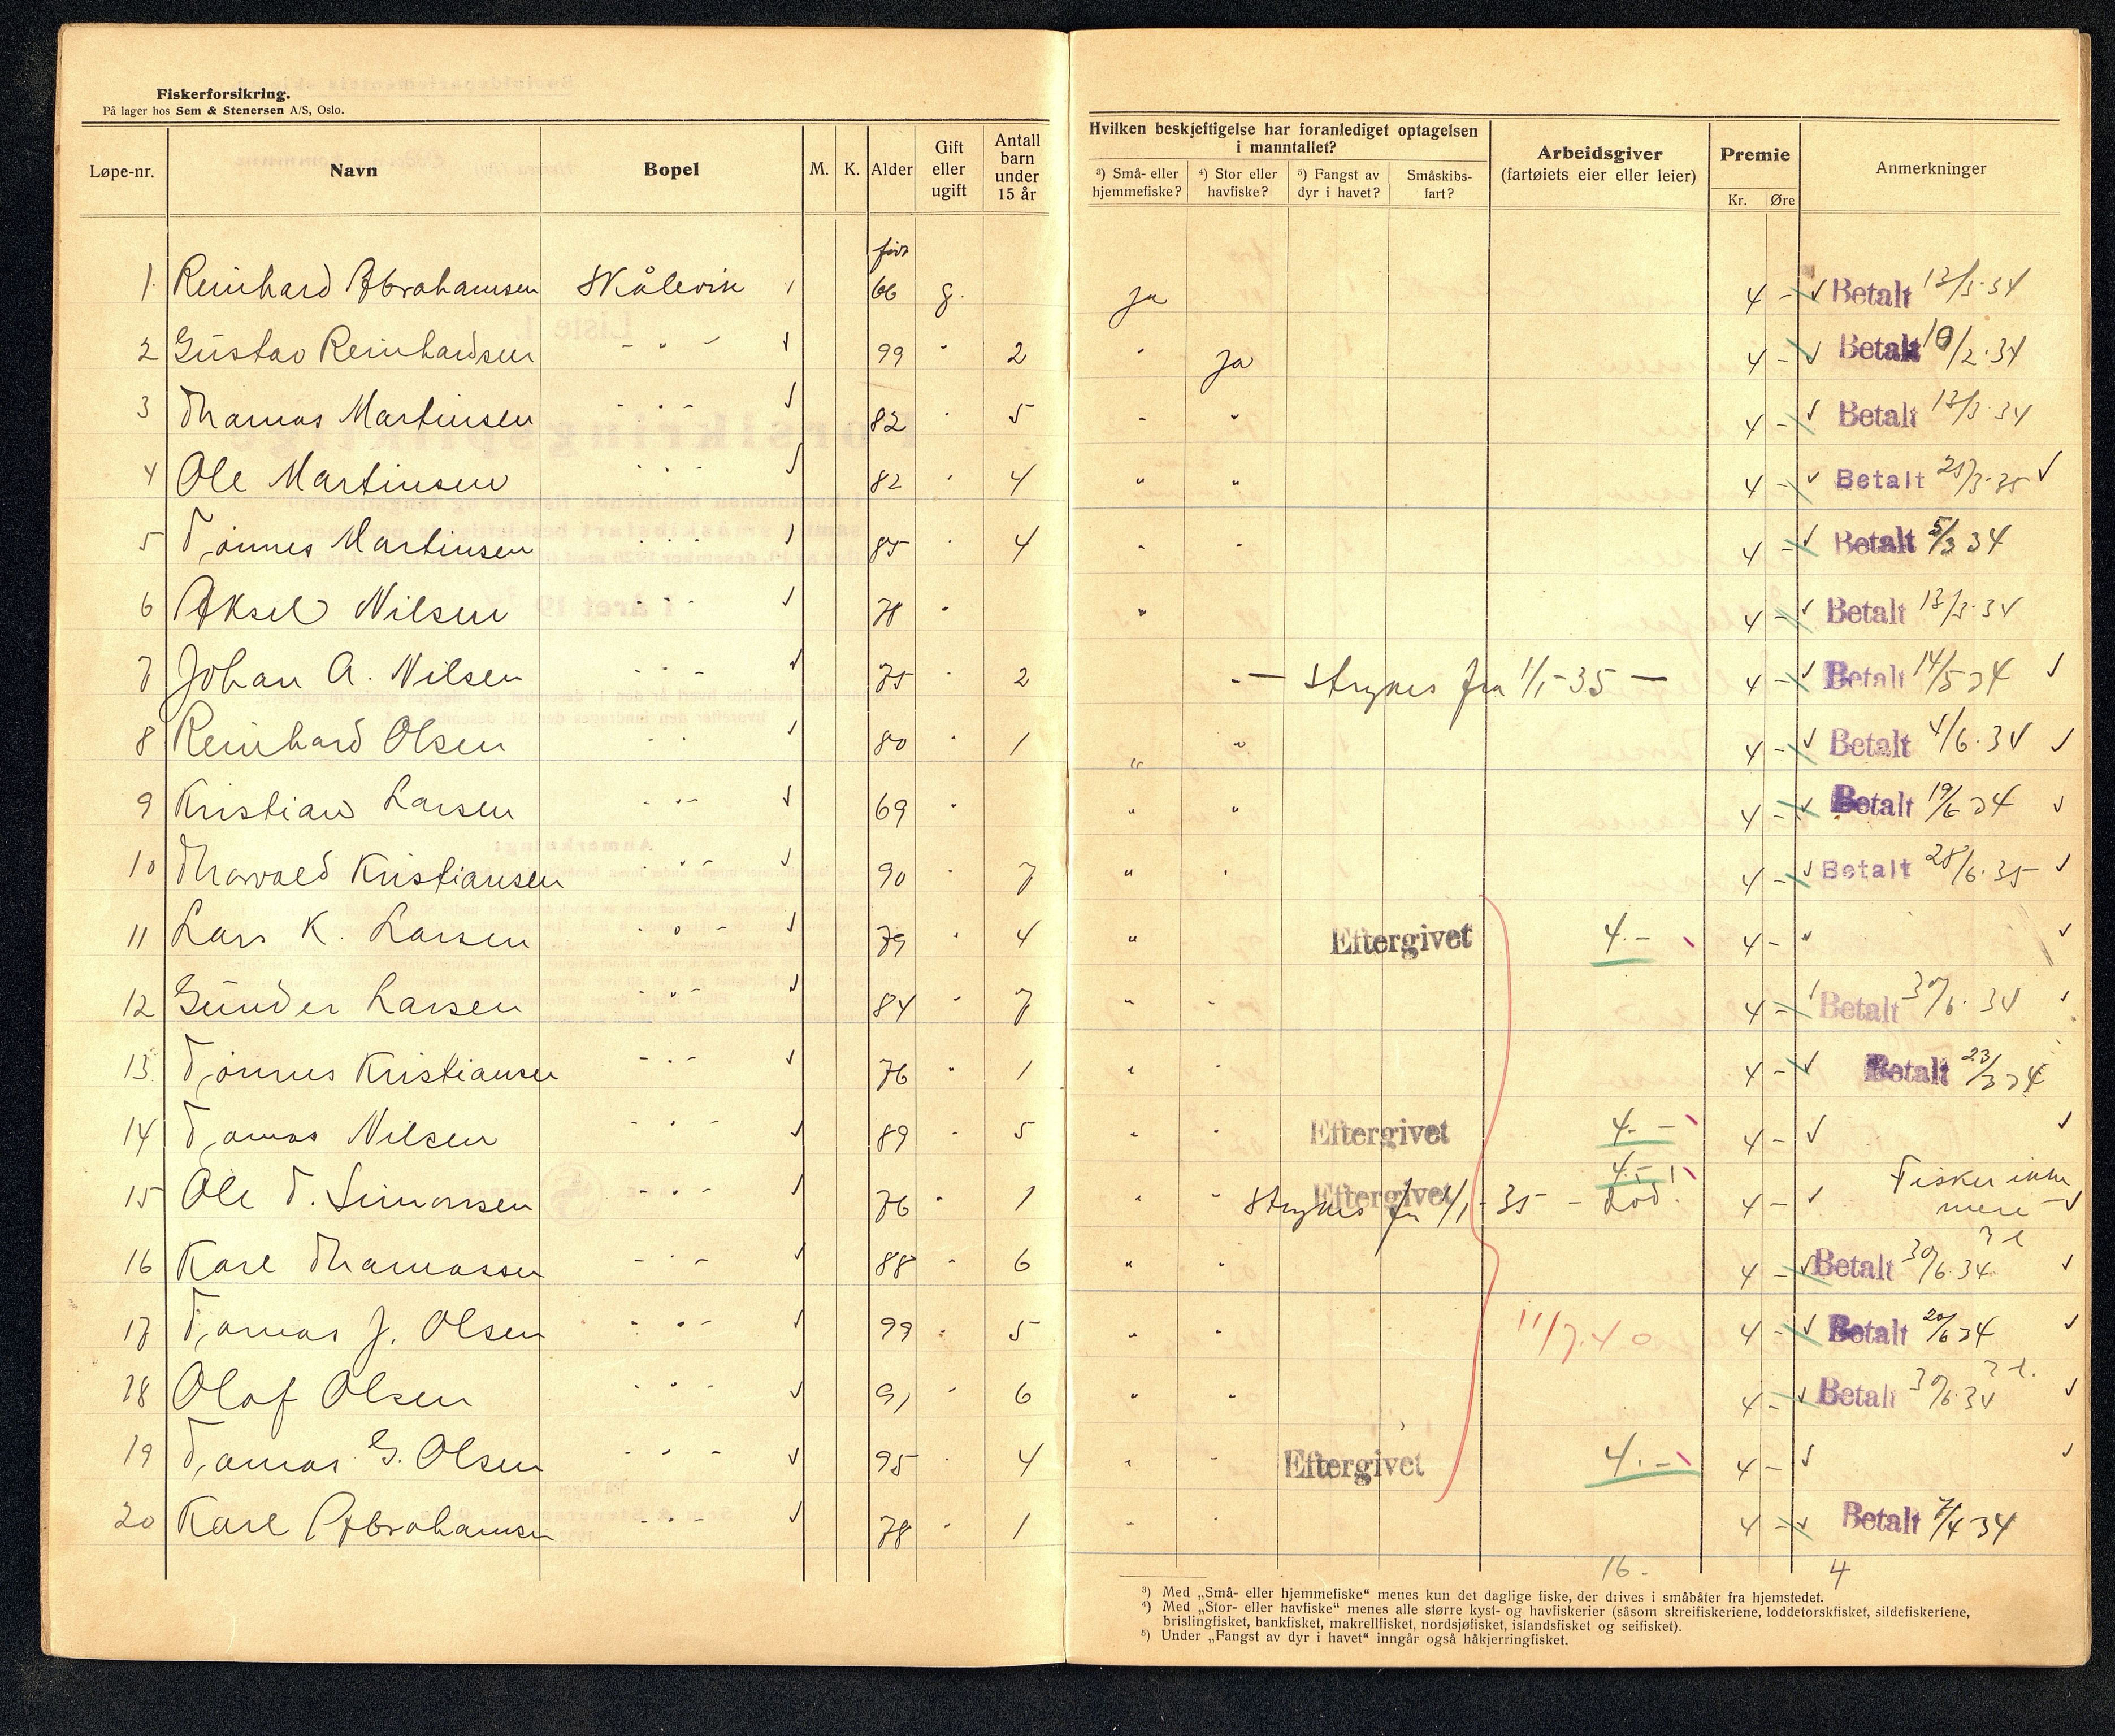 Fiskerforsikring.
På lager hos Sem & Stenersen A/S, Oslo.
Løpe-nr. Navn Bopel M. K. Alder Gift eller ugift Antall barn under 15 år Hvilken beskjeftigelse har foranlediget optagelsen i manntallet? ³) Små- eller hjemmefiske? ⁴) Stor eller havfiske? ⁵) Fangst av dyr i havet? Småskibs-fart? Arbeidsgiver (fartøiets eier eller leier) Premie Kr. Øre Anmerkninger
født
1. Reinhard Abrahamsen Skålevik 66 g. ja 4 - Betalt 13/3-34
2 Gustav Reinhardsen - " - 99 " 2 " ja 4 - Betalt 10/2-34
3 Thomas Martinsen - " - 82 " 5 " " 4 - Betalt 13/3-34
4 Ole Martinsen - " - 82 " 4 " " 4 - Betalt 25/3-35
5 Tønnes Martinsen - " - 85 " 4 " " 4 - Betalt 5/3 34
6 Aksel Nilsen - " - 78 " " 4 - Betalt 13/3-34
7 Johan A. Nilsen - " - 75 " 2 " — strykes fra 1/1-35 — 4 - Betalt 14/5 34
8 Reinhard Olsen - " - 80 " 1 " " 4 - Betalt 4/6-34
9 Kristian Larsen - " - 69 " " " 4 - Betalt 19/6 34
10 Thorvald Kristiansen - " - 90 " 7 " " 4 - Betalt 28/6-35
11 Lars K. Larsen - " - 79 " 4 " Eftergivet 4.- 4 -
12 Gunder Larsen - " - 84 " 7 " " 4 - Betalt 30/6-34
13. Tønnes Kristiansen - " - 76 " 1 " " 4 - Betalt 23/3 34
14 Tomas Nilsen - " - 89 " 5 " " Eftergivet 4.- 4 -
15 Ole T. Simonsen - " - 76 " 1 " " Eftergivet 4.- Strykes fra 1/1-35 - død. 4 - Fisker ikke mere
16 Karl Thomassen - " - 88 " 6 " " 4 - Betalt 30/6 34
17 Tomas J. Olsen - " - 99 " 5 " " 11/7.40 4 - Betalt 20/6 34
18 Olaf Olsen - " - 91 " 6 " " 4 - Betalt 30/6-34
19 Tomas G. Olsen - " - 95 " 4 " " Eftergivet 4.- 4 -
20 Karl Abrahamsen - " - 78 " 1 " " 4 - Betalt 7/4-34
16.- 4
³) Med „Små- eller hjemmefiske“ menes kun det daglige fiske, der drives i småbåter fra hjemstedet.
⁴) Med „Stor- eller havfiske“ menes alle større kyst- og havfiskerier (såsom skreifiskeriene, loddetorskfisket, sildefiskeriene,
brislingfisket, bankfisket, makrellfisket, nordsjøfisket, islandsfisket og seifisket).
⁵) Under „Fangst av dyr i havet“ inngår også håkjerringfisket.